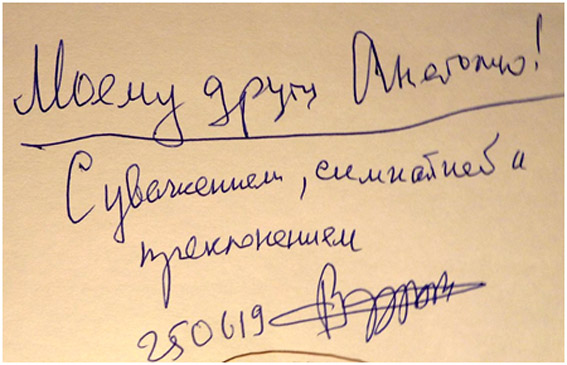 Моему другу Анатолию!
С уважением, симпатией и
преклонением
250619